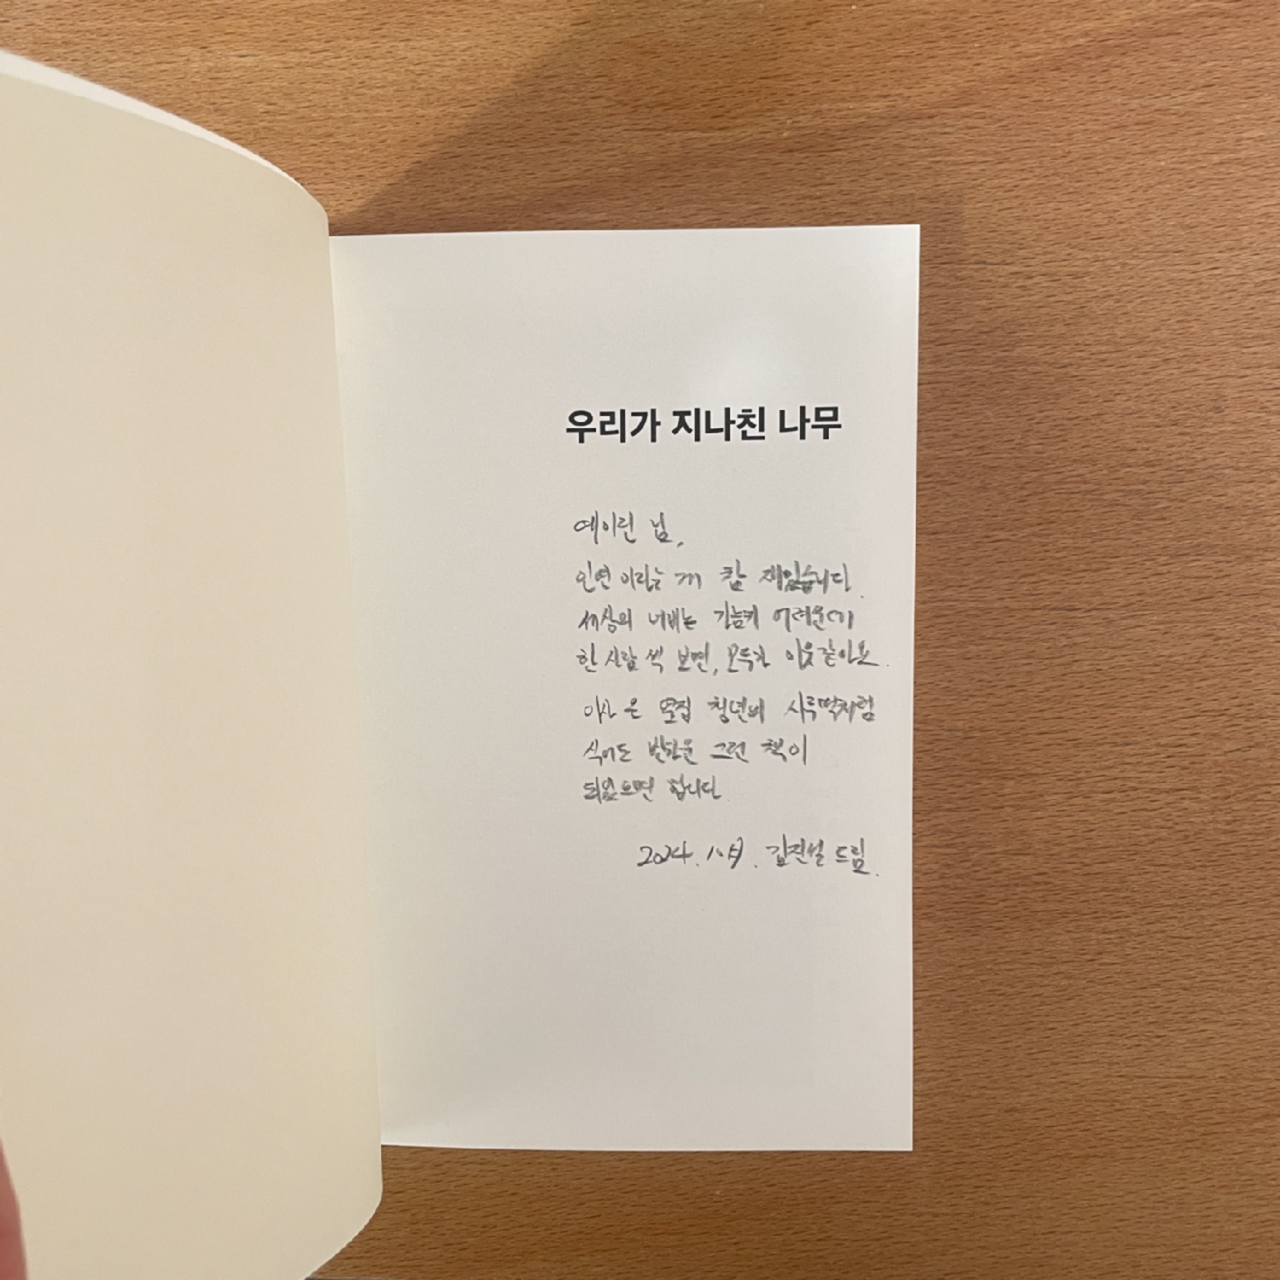 우리가 지나친 나무
예이린 님,
인연이라는 게 참 재밌습니다.
세상의 너비는 가늠키 어려운데
한 사람씩 보면, 모두가 이웃같아요.
이사 온 옆집 청년의 시루떡처럼
식어도 반가운 그런 책이
되었으면 합니다
2024. 김진설 드림.